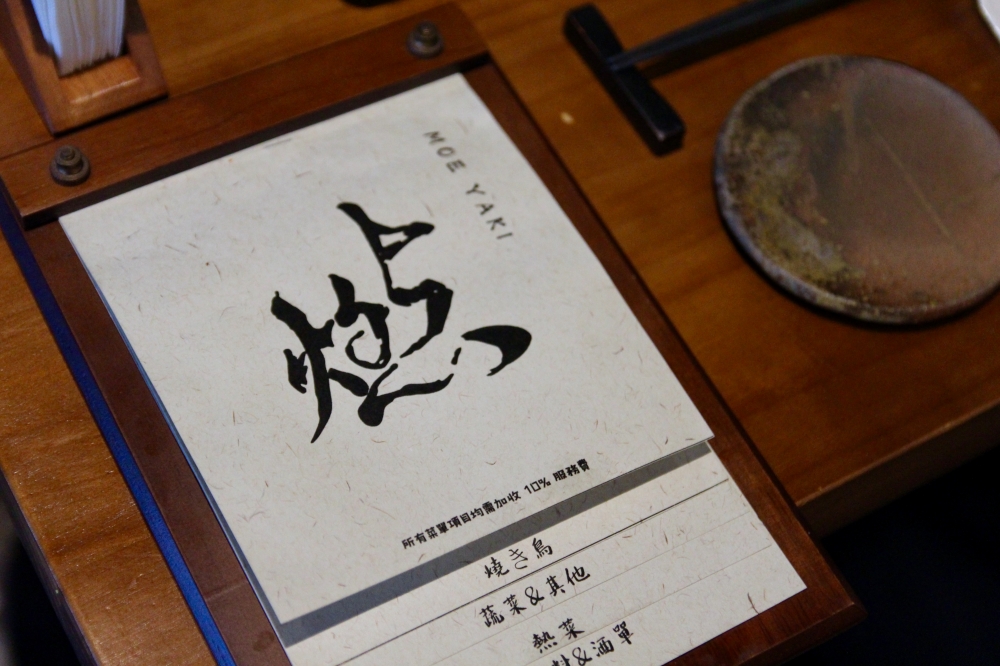 MOE YAKI
燃
所有菜單項目均需加收 10% 服務費
燒き鳥
蔬菜&其他
熱菜
料&酒單